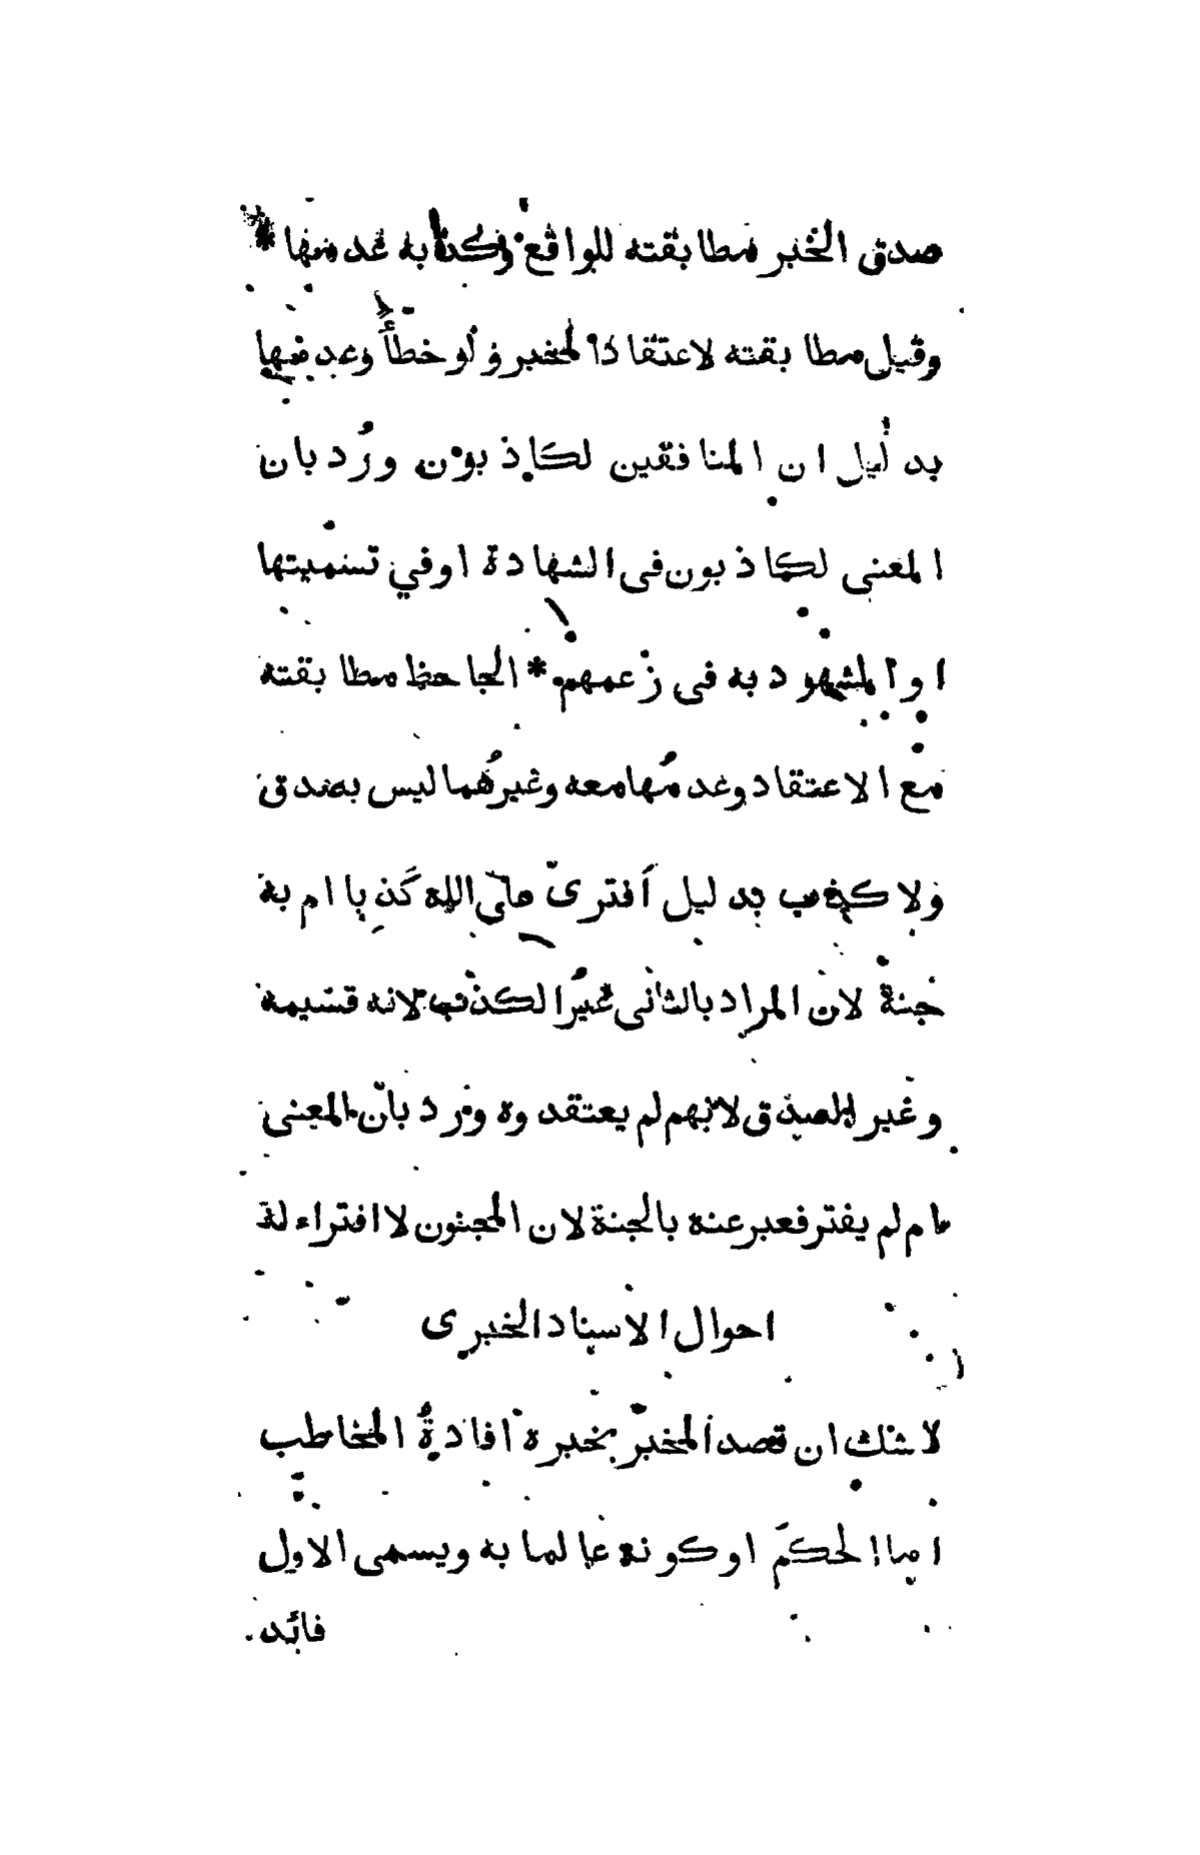 صدق الخبر مطابقته للواقع وكذبه عدمها *
وقيل مطابقته لاعتقاد المخبر ولو خطأ وعدمها
بدليل ان المنافقين لكاذبون ورُد بان
المعنى لكاذبون فى الشهادة اوفي تسميتها
او المشهود به فى زعمهم * الجاحظ مطابقته
مع الاعتقاد وعدمُها معه وغيرُهما ليس بصدق
ولا كذب بدليل أفترى على الله كَذِبا ام به
جنة لان المراد بالثانى غيرُ الكذب لانه قسيمه
وغير الصدق لانهم لم يعتقدوه ورد بان المعنى
ام لم يفتر فعبر عنه بالجنة لان المجنون لا افتراء له
احوال الاسناد الخبرى
لا شك ان قصد المخبر بخبره افادةُ المخاطب
اما الحكمَ او كونه عالما به ويسمى الاول
فائد